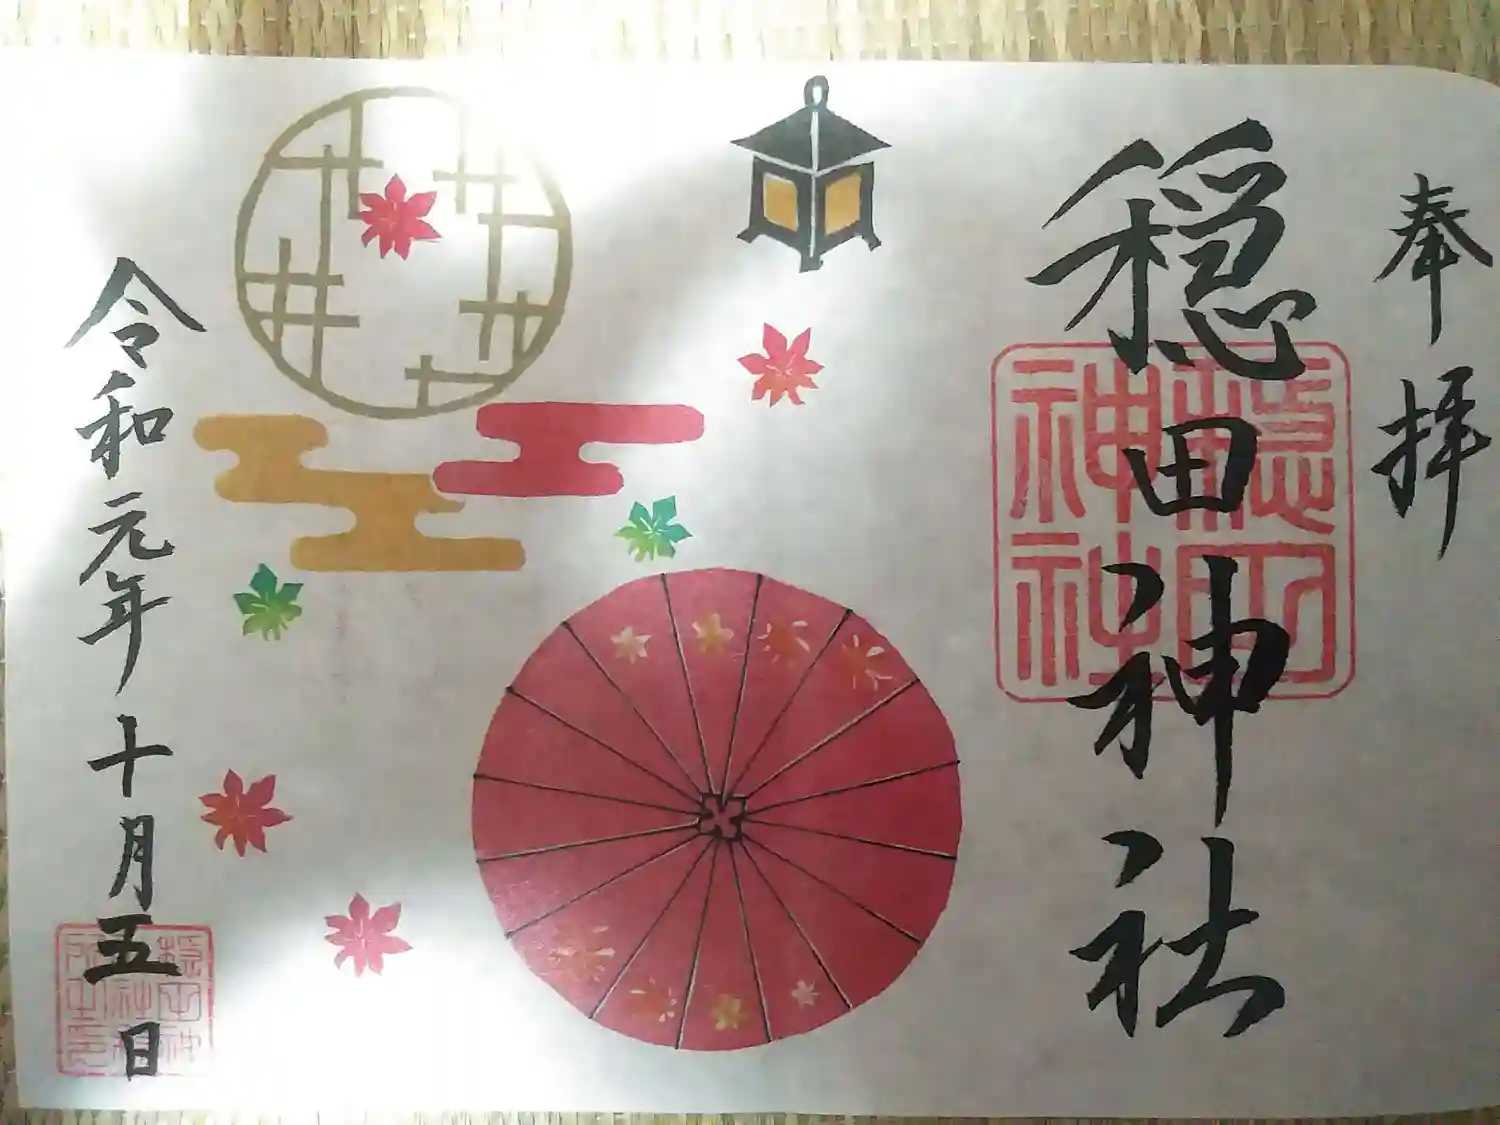 奉拝
穏田神社
穏田
神社
令和元年十月五日